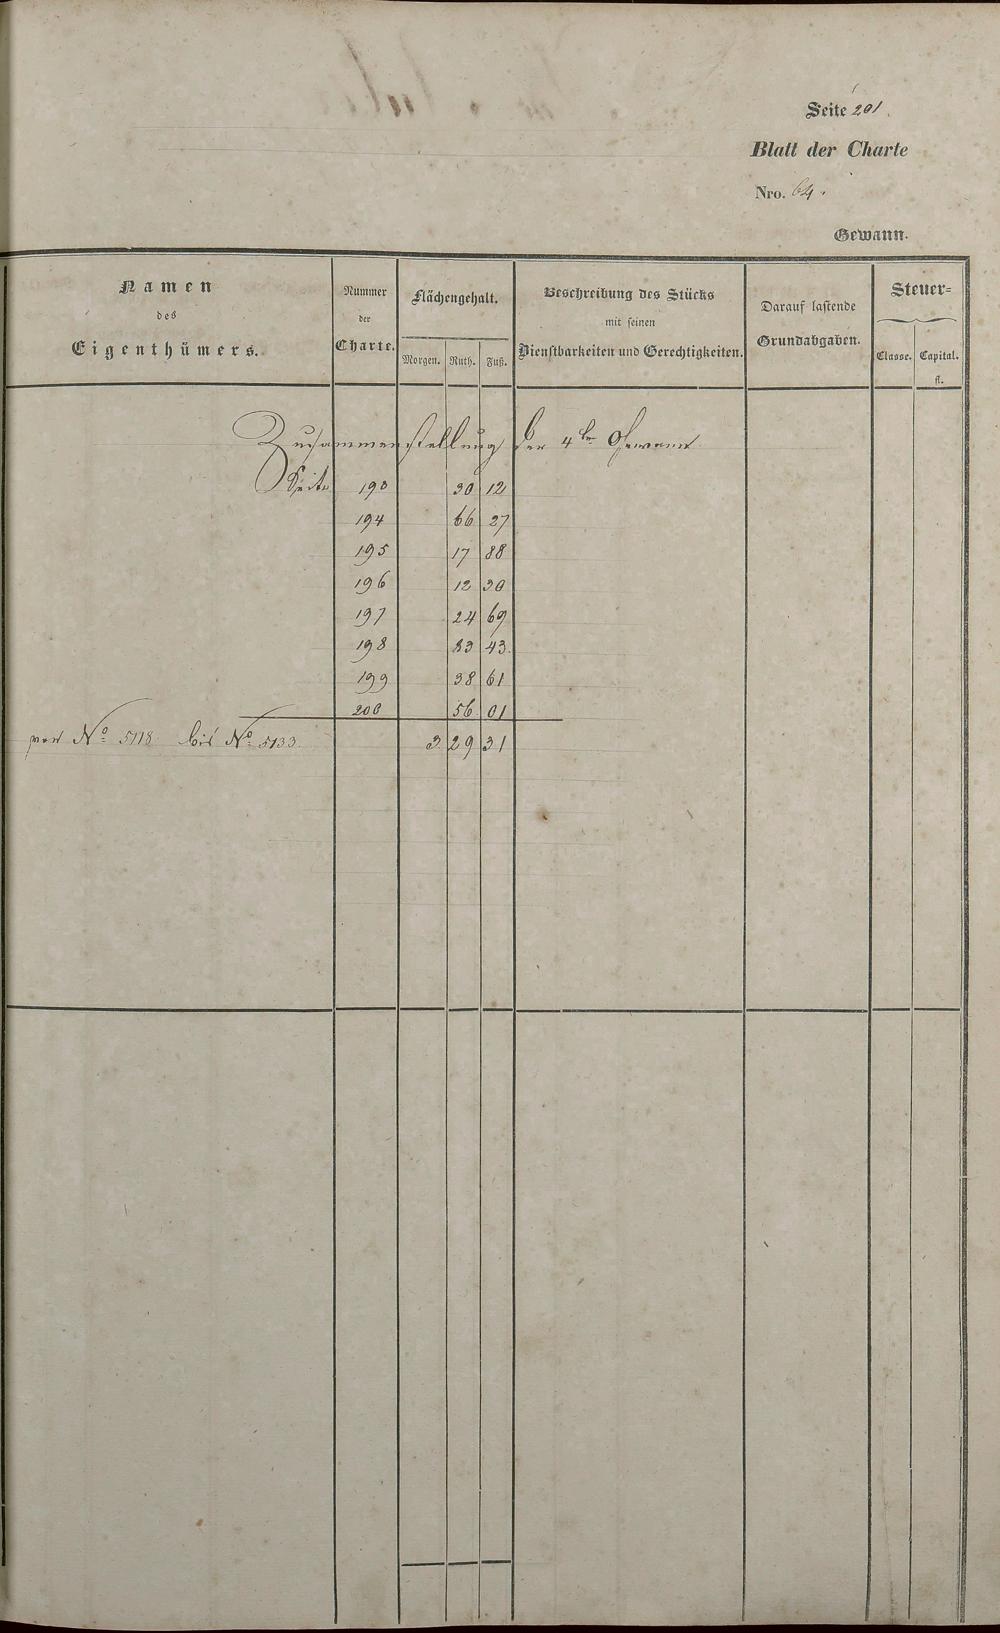 Seite 201.
Blatt der Charte
Nro. 64.
Gewann.
Namen des Eigenthümers.
Nummer der Charte.
Flächengehalt.
Morgen. Ruth. Fuß.
Beschreibung des Stücks mit seinen Dienstbarkeiten und Gerechtigkeiten.
Darauf lastende Grundabgaben.
Steuer=
Classe. Capital.
fl.
Zusammenstellung der 4ten Gewann
Seite 193 30 12
194 66 27
195 17 88
196 12 30
197 24 69
198 83 43
199 38 61
200 56 01
von No 5118 bis No 5133. 3 29 31